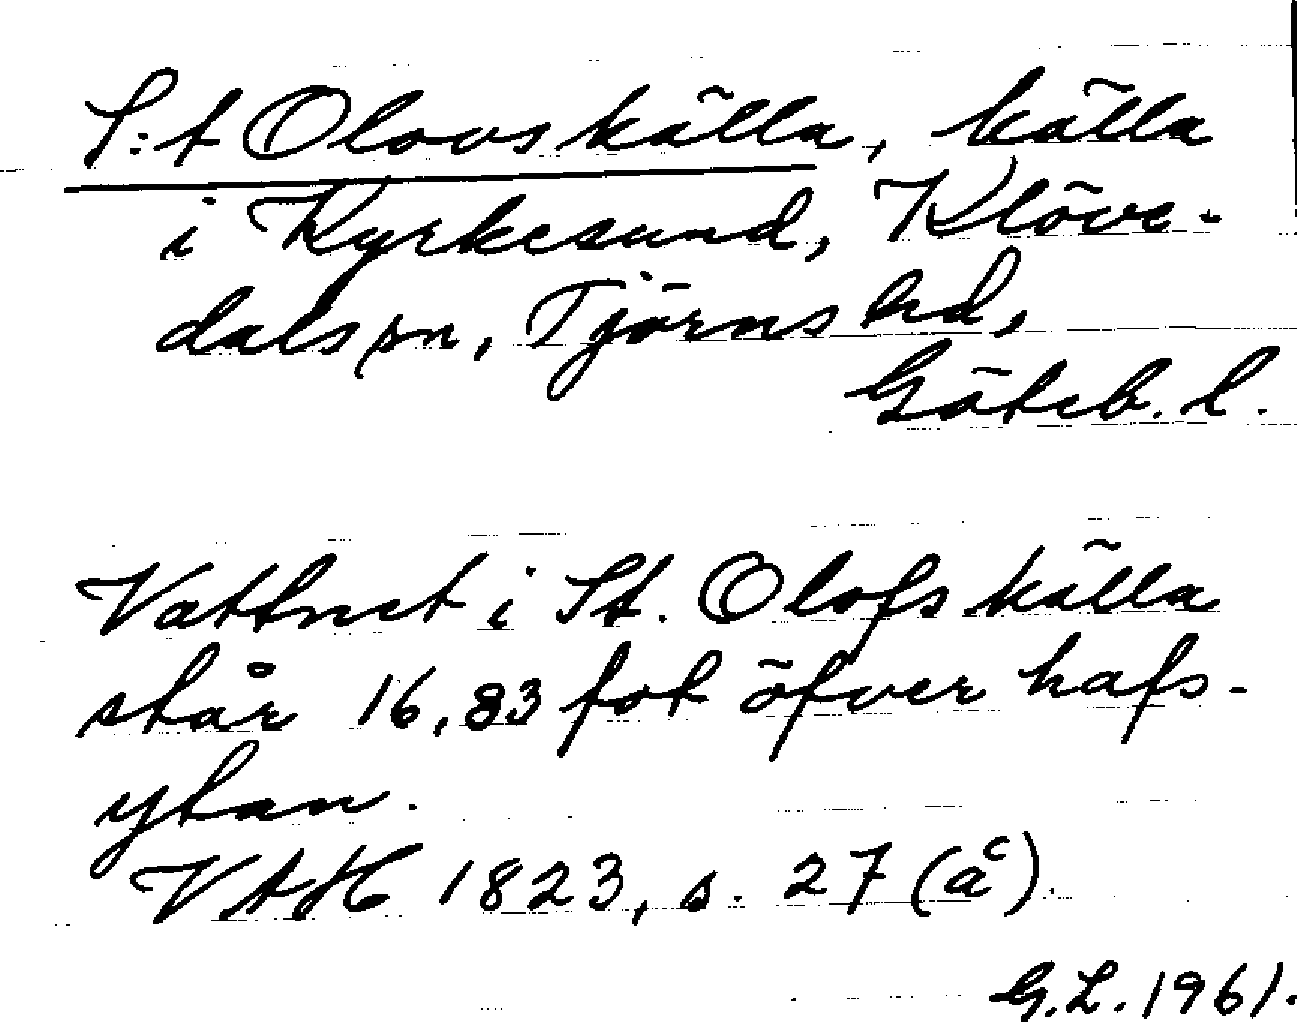 S:t Olovs källa, källa
i Kyrkesund, Klöve-
dals sn, Tjörns hd,
Göteb. l.
Vattnet i St. Olofs källa
står 16,83 fot öfver hafs-
ytan.
VAH 1823, s. 27 (åc).
G.L. 1961.